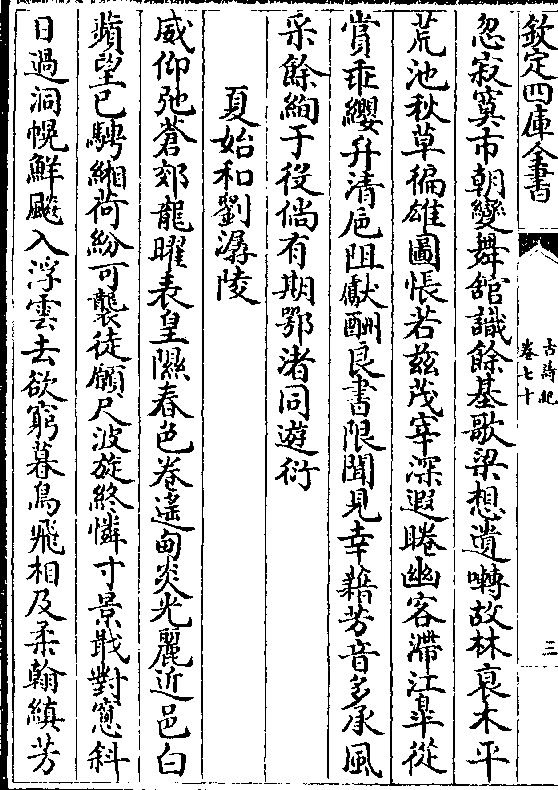 欽定四庫全書
古詩紀
卷七十
三
忽寂寞市朝變舞館識餘基歌梁想遺囀故林衰木平
荒池秋草徧雄圖悵若兹茂宰深遐睠幽客滯江臯從
賞乖纓弁清巵阻獻酬良書限聞見幸藉芳音多承風
采餘絢于役倘有期鄂渚同遊衍
夏始和劉潺陵
威仰弛蒼郊龍曜表皇隰春色卷遙甸炎光麗近邑白
蘋望已騁緗荷紛可襲徒願尺波旋終憐寸景戢對窻斜
日過洞幌鮮飈入浮雲去欲窮暮鳥飛相及柔翰縝芳